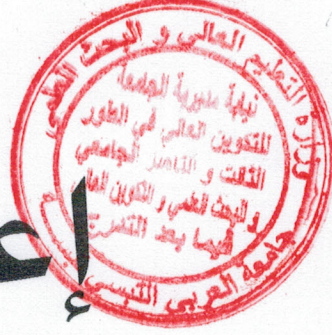 وزارة التعليم العالي و البحث العلمي
نيابة مديرية الجامعة
للتكوين العالي في الطور
الثالث و التأهيل الجامعي
و البحث العلمي و التكوين العالي
فيما بعد التدرج
جامعة العربي التبسي
إع